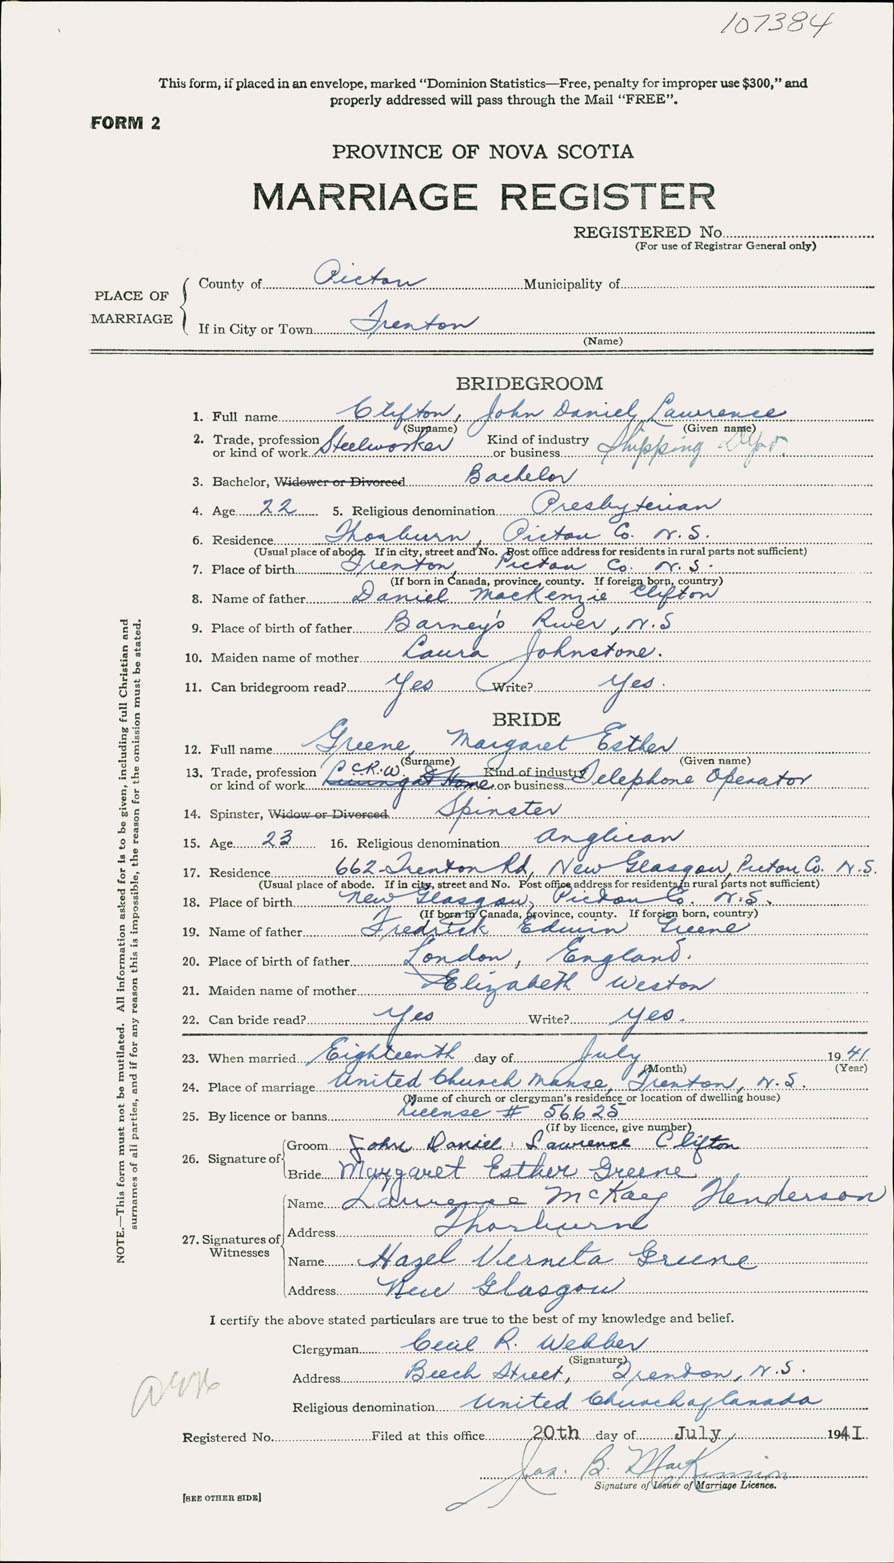 107384
This form, if placed in an envelope, marked “Dominion Statistics—Free, penalty for improper use $300,” and
properly addressed will pass through the Mail “FREE”.
FORM 2
PROVINCE OF NOVA SCOTIA
MARRIAGE REGISTER
REGISTERED No.
(For use of Registrar General only)
PLACE OF MARRIAGE
County of Pictou Municipality of
If in City or Town Trenton
(Name)
BRIDEGROOM
1. Full name Clifton, John Daniel Lawrence
(Surname) (Given name)
2. Trade, profession or kind of work Steelworker Kind of industry or business Shipping Dept.
3. Bachelor, Widower or Divorced Bachelor
4. Age 22 5. Religious denomination Presbyterian
6. Residence Thorburn, Pictou Co. N.S.
(Usual place of abode. If in city, street and No. Post office address for residents in rural parts not sufficient)
7. Place of birth Trenton, Pictou Co. N.S.
(If born in Canada, province, county. If foreign born, country)
8. Name of father Daniel MacKenzie Clifton
9. Place of birth of father Barney's River, N.S
10. Maiden name of mother Laura Johnstone.
11. Can bridegroom read? Yes Write? Yes.
BRIDE
12. Full name Greene, Margaret Esther
(Surname) (Given name)
13. Trade, profession or kind of work C.R.W. Living at Home Kind of industry or business Telephone Operator
14. Spinster, Widow or Divorced Spinster
15. Age 23 16. Religious denomination Anglican
17. Residence 662 Trenton Rd, New Glasgow, Pictou Co. N.S.
(Usual place of abode. If in city, street and No. Post office address for residents in rural parts not sufficient)
18. Place of birth New Glasgow, Pictou Co. N.S.
(If born in Canada, province, county. If foreign born, country)
19. Name of father Fredrick Edwin Greene
20. Place of birth of father London, England.
21. Maiden name of mother Elizabeth Weston
22. Can bride read? Yes Write? Yes.
23. When married Eighteenth day of July 1941
(Month) (Year)
24. Place of marriage United Church Manse, Trenton, N.S.
(Name of church or clergyman's residence or location of dwelling house)
25. By licence or banns License # 56625
(If by licence, give number)
26. Signature of
Groom John Daniel Lawrence Clifton
Bride Margaret Esther Greene
27. Signatures of Witnesses
Name Lawrence McKay Henderson
Address Thorburn
Name Hazel Verneta Greene
Address New Glasgow
I certify the above stated particulars are true to the best of my knowledge and belief.
Clergyman Cecil R. Webber
(Signature)
Address Beech Street, Trenton, N.S.
Religious denomination United Church of Canada
Registered No. Filed at this office 20th day of July 1941
Jas. B. MacKinnon
Signature of Issuer of Marriage Licence.
[SEE OTHER SIDE]
NOTE.—This form must not be mutilated. All information asked for is to be given, including full Christian and
surnames of all parties, and if for any reason this is impossible, the reason for the omission must be stated.